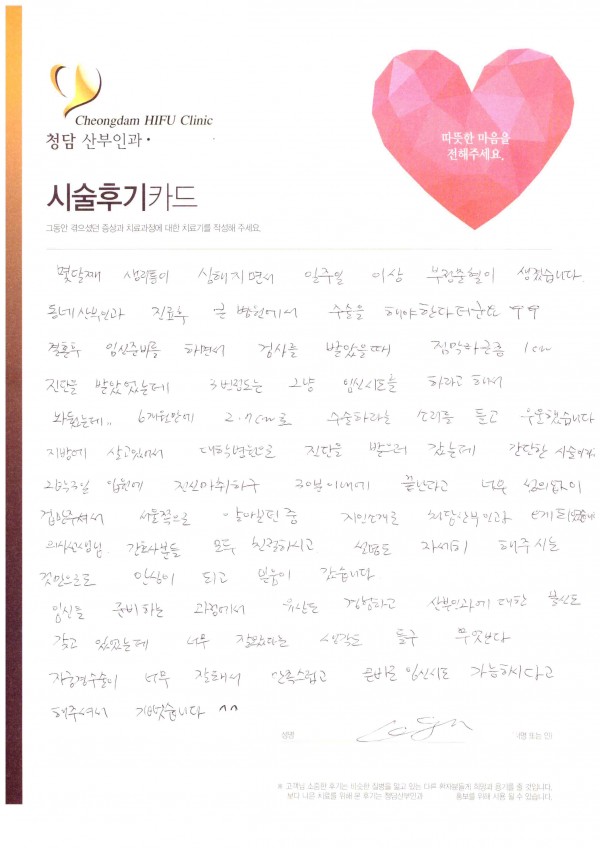 Cheongdam HIFU Clinic
청담 산부인과
따뜻한 마음을
전해주세요.
시술후기카드
그동안 겪으셨던 증상과 치료과정에 대한 치료기를 작성해 주세요.
몇달째 생리통이 심해지면서 일주일 이상 부정출혈이 생겼습니다.
동네산부인과 진료후 큰 병원에서 수술을 해야한다더군요 ㅠㅠ
결혼후 임신준비를 하면서 검사를 받았을때 점막하근종 1cm
진단을 받았었는데 3번정도는 그냥 임신시도를 하라고 해서
놔뒀는데.. 6개월만에 2.7cm로 수술하라는 소리를 듣고 우울했습니다
지방에 살고있어서 대학병원으로 진단을 받으러 갔는데 간단한 시술이라
2박3일 입원에 전신마취하구 30분이내에 끝난다고 너무 성의없이
겁만주셔서 서울쪽으로 알아보던중 지인소개로 청담산부인과
의사선생님, 간호사분들 모두 친절하시고 설명도 자세히 해주시는
것만으로도 안심이 되고 믿음이 갔습니다
임신을 준비하는 과정에서 유산도 경험하고 산부인과에 대한 불신도
갖고 있었는데 너무 잘왔다는 생각도 들구
자궁경수술이 너무 잘돼서 만족스럽고 곧바로 임신시도 가능하시다고
해주셔서 기뻤습니다 ^^
성명
※ 고객님 소중한 후기는 비슷한 질병을 앓고 있는 다른 환자분들께 희망과 용기를 줄 것입니다.
보다 나은 치료를 위해 본 후기는 청담산부인과 홍보를 위해 사용 될 수 있습니다.